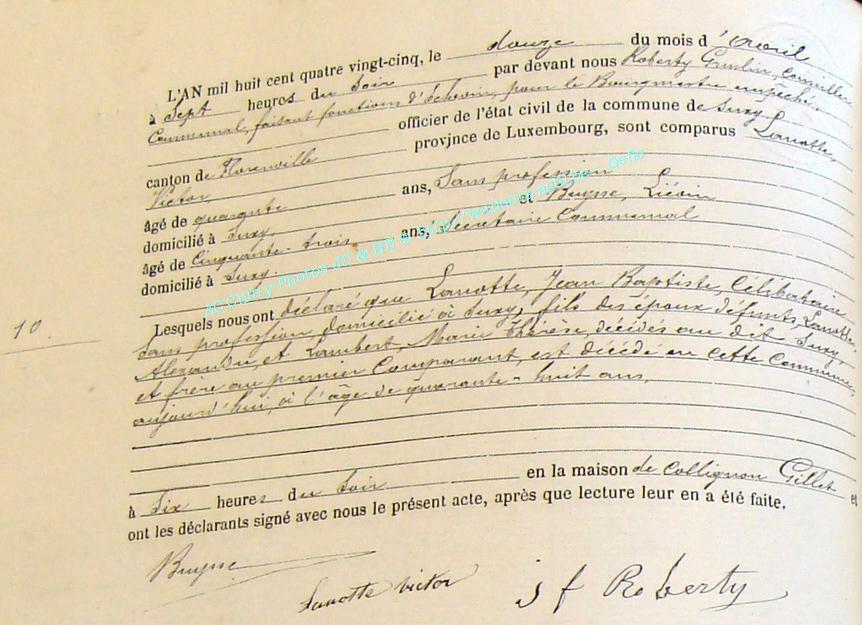 L'AN mil huit cent quatre vingt-cinq, le douze du mois d'Avril
à Sept heures du Soir par devant nous Roberty Conseiller
Communal, faisant fonctions d'Echevin, pour le Bourgmestre empêché.
officier de l'état civil de la commune de Suxy
canton de Florenville province de Luxembourg, sont comparus Lanotte,
Victor,
âgé de quarante ans, Sans profession
domicilié à Suxy, et Buysse, Liévin
âgé de Cinquante-trois ans, Secrétaire Communal
domicilié à Suxy.
Lesquels nous ont déclaré que Lanotte, Jean Baptiste, Célibataire
Sans profession, domicilié à Suxy, fils des époux défunts, Lanotte,
Alexandre, et Lambert, Marie Thérèse, décédés au dit Suxy,
et frère au premier Comparant, est décédé en cette Commune,
aujourd'hui, à l'âge de quarante-huit ans,
10
à Six heures du Soir en la maison de Collignon Gillet et
ont les déclarants signé avec nous le présent acte, après que lecture leur en a été faite.
Buysse
Lanotte Victor
J f Roberty